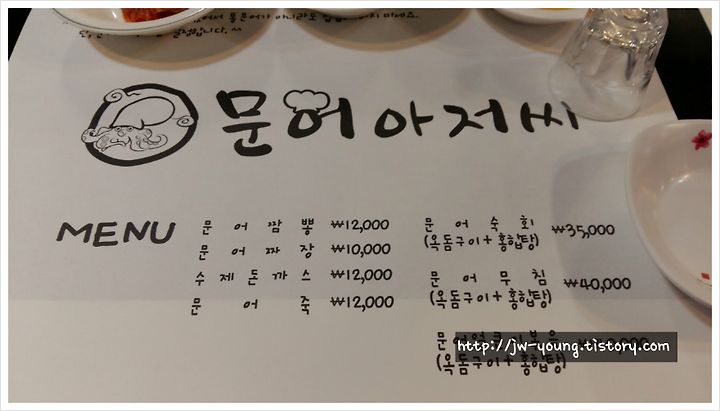 아니라도
문어아저씨
MENU
문어짬뽕 ₩12,000
문어짜장 ₩10,000
수제돈까스 ₩12,000
문어죽 ₩12,000
문어숙회 ₩35,000
(옥돔구이+홍합탕)
문어무침 ₩40,000
(옥돔구이+홍합탕)
(옥돔구이+홍합탕)
http://jw-young.tistory.com